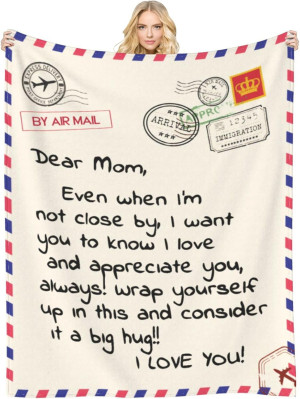 EXPRESS DELIVERY
BY AIR MAIL
ARRIVAL
12345
IMMIGRATION
Dear Mom,
Even when i'm
not close by, I want
you to know I love
and appreciate you,
always! wrap yourself
up in this and consider
it a big hug!!
I LOVE YOU!